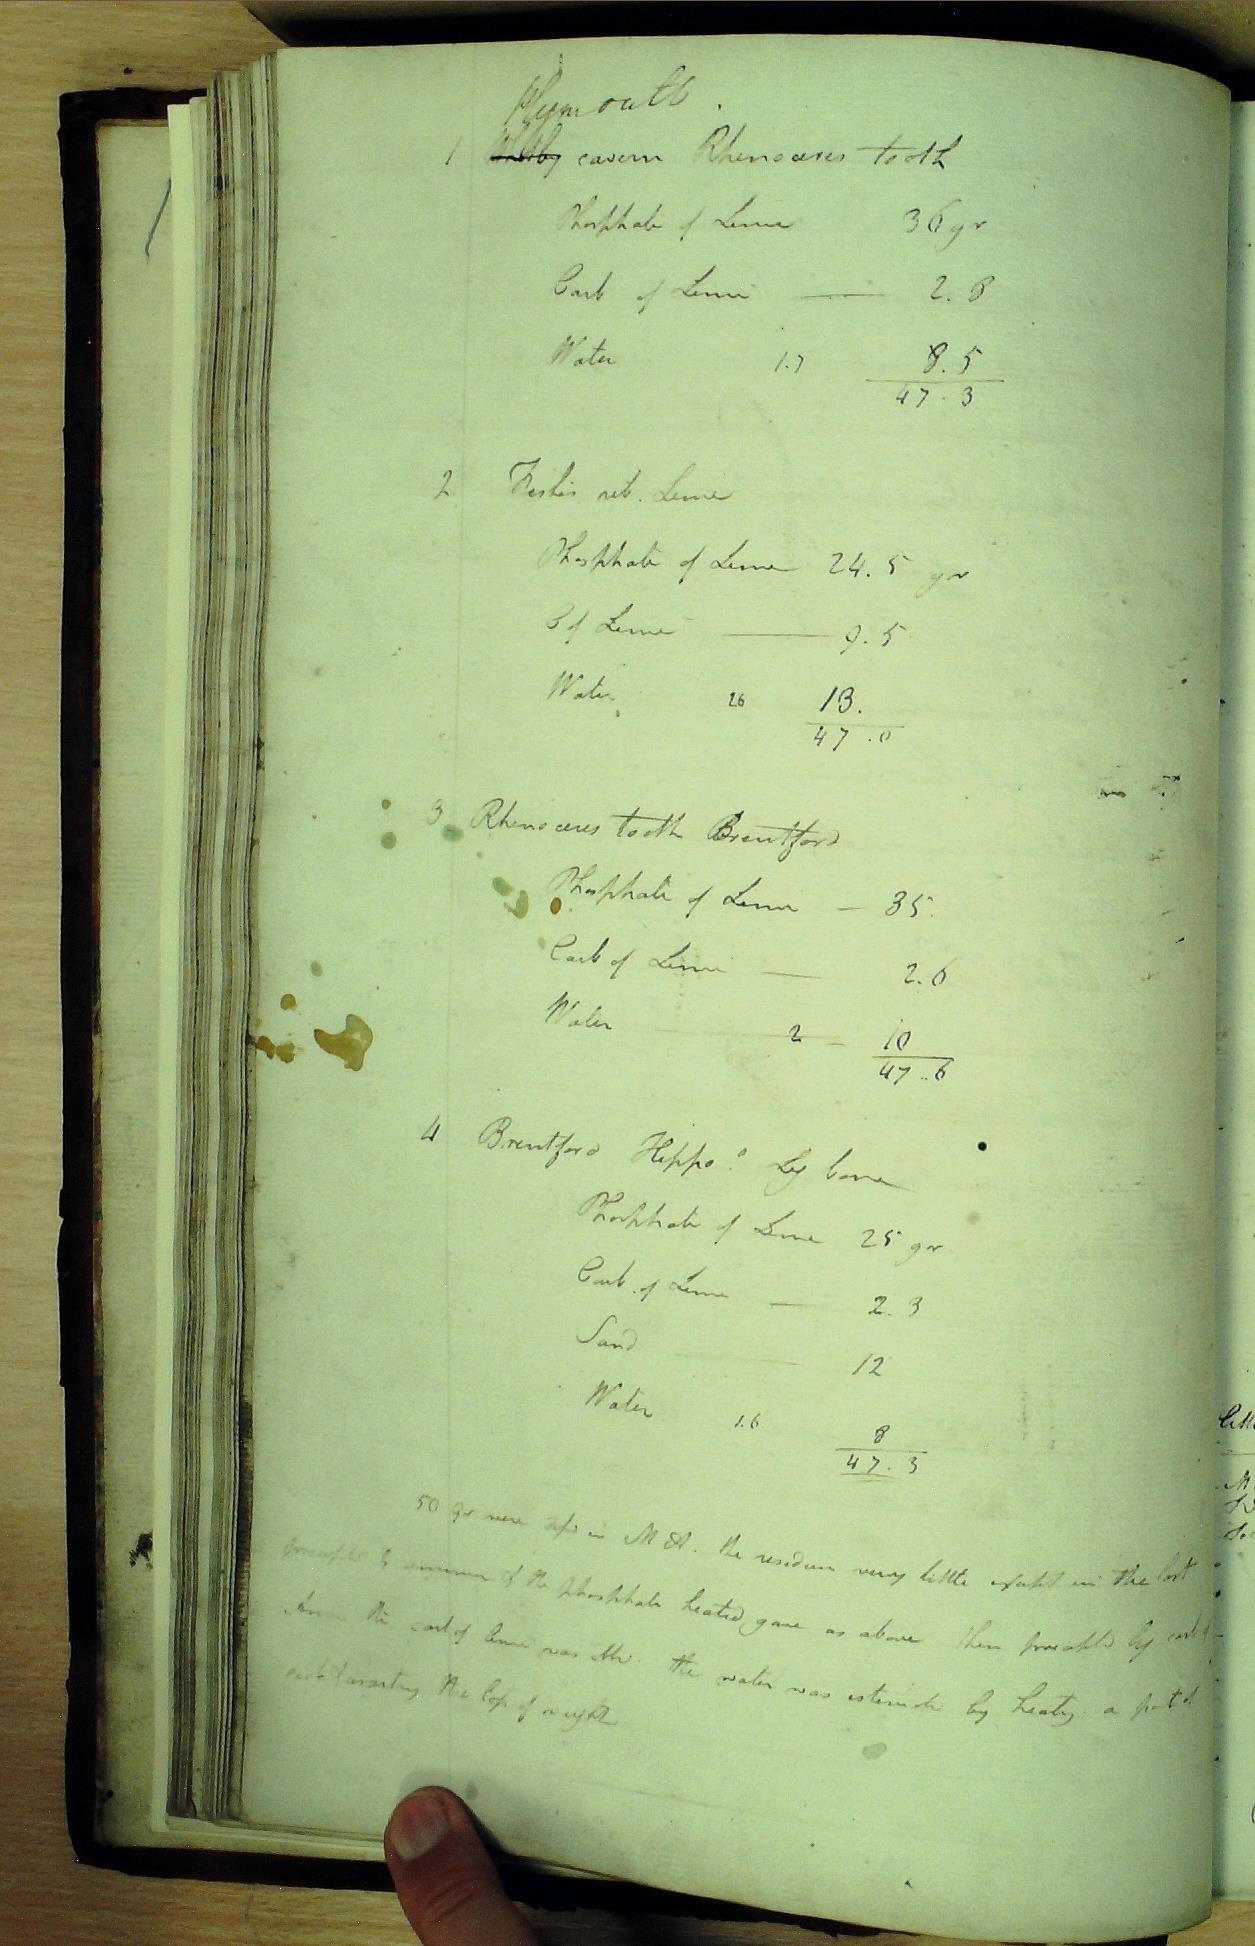 Plymouth.
1 Whitby cavern Rhinoceros tooth
Phosphate of Lime 36 gr
Carb of Lime — 2.8
Water 1.7 8.5
47.3
2 Lime
Phosphate of Lime 24.5 gr
C of Lime — 9.5
Water 26 13.
47.0
3 Rhinoceros tooth Brentford
Phosphate of Lime — 35.
Carb of Lime — 2.6
Water — 2 — 10
47.6
4 Brentford Hippo.⁰ Leg bone
Phosphate of Lime 25 gr
Carb. of Lime — 2.3
Sand — 12
Water 1.6 8
47.3
50 gr were in M A. the residuum very little except in the last
of the phosphate heated gave as above then by carb of
the carb of lime was the water was by heating a part of
the loss of weight